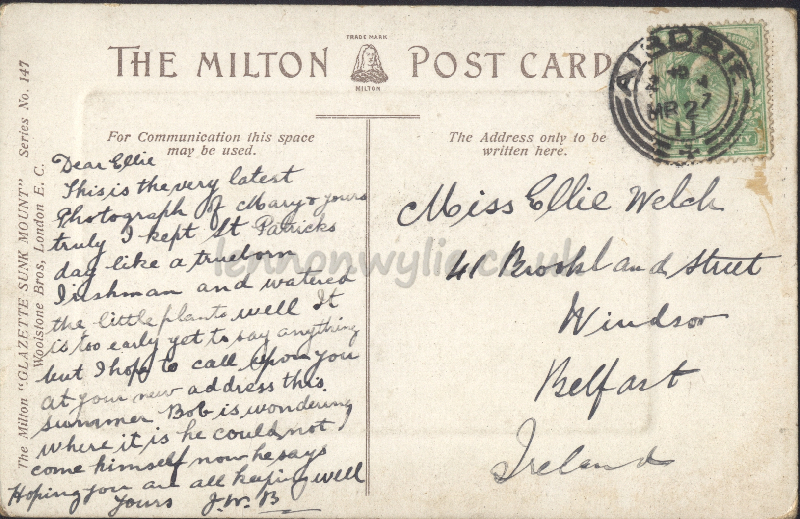 TRADE MARK
THE MILTON POST CARD
MILTON
AIRDRIE
MR 27
11
For Communication this space
may be used.
The Address only to be
written here.
The Milton "GLAZETTE SUNK MOUNT" Series No. 147
Woolstone Bros, London E. C.
Dear Ellie
This is the very latest
Photograph of Mary & yours
truly I kept St Patricks
day like a trueborn
Irishman and watered
the little plants well It
is too early yet to say anything
but I hope to call upon you
at your new address this
summer Bob is wondering
where it is he could not
come himself now he says
Hoping you are all keeping well
Yours J. W. B
Miss Ellie Welch
41 Brookland Street
Windsor
Belfast
Ireland
lennonwylie.co.uk